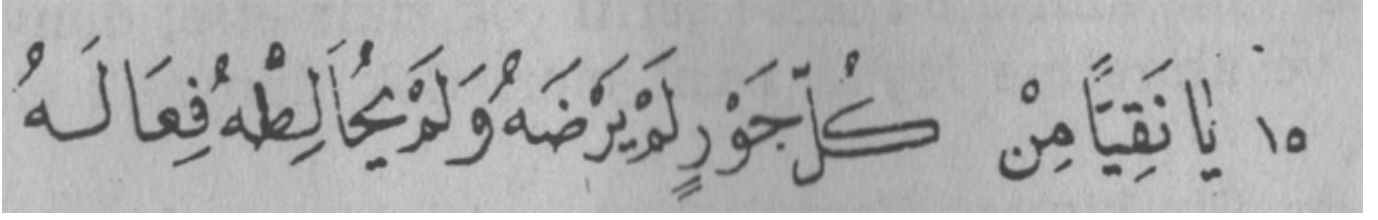 ١٥ يَا نَقِيًّا مِنْ كُلِّ جَوْرٍ لَمْ يَرْضَهُ وَلَمْ يُخَالِطْهُ فِعَالَهُ